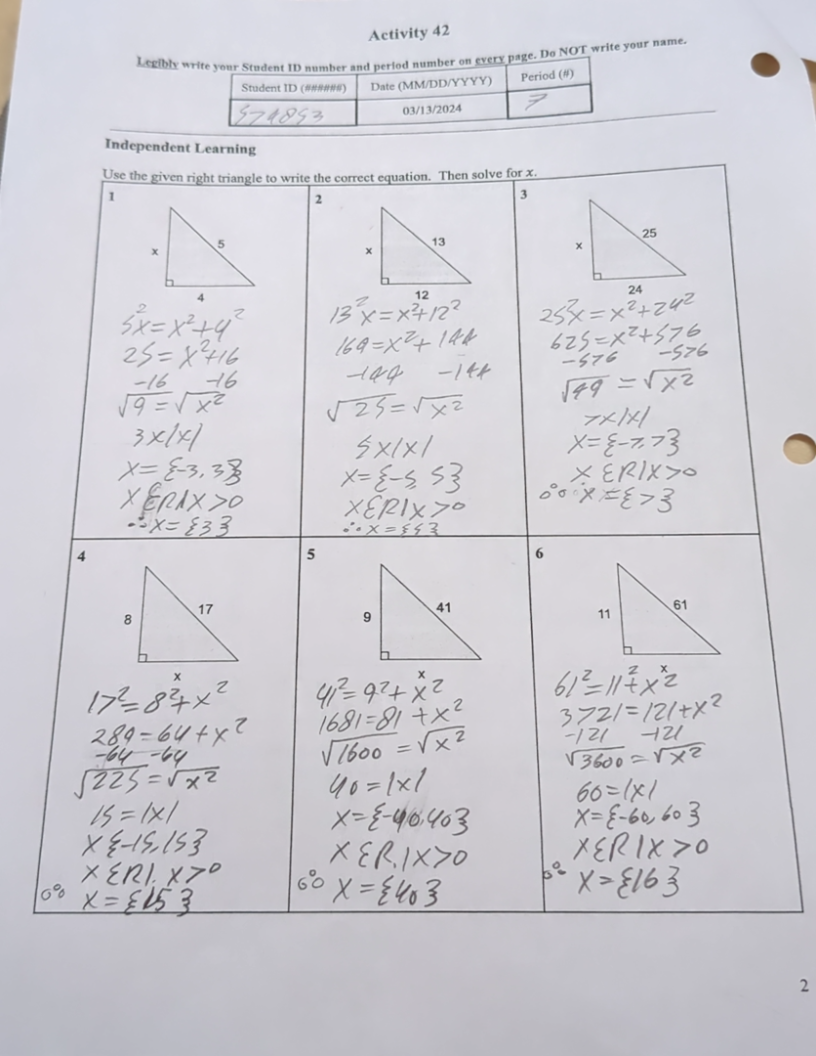 Activity 42
Legibly write your Student ID number and period number on every page. Do NOT write your name.
Student ID (######) Date (MM/DD/YYYY) Period (#)
574853 03/13/2024 7
Independent Learning
Use the given right triangle to write the correct equation. Then solve for x.
1
x 5
4
5²x=x²+4²
25=x²+16
-16 -16
√9=√x²
3x|x|
x={-3,3}
xER|x>0
∴x={3}
2
x 13
12
13²x=x²+12²
169=x²+144
-144 -144
√25=√x²
5x|x|
x={-5,5}
xER|x>0
∴x={5}
3
x 25
24
25²x=x²+24²
625=x²+576
-576 -576
√49=√x²
7x|x|
x={-7,7}
xER|x>0
∴x={7}
4
8 17
x
17²=8²+x²
289=64+x²
-64 -64
√225=√x²
15=|x|
x{-15,15}
xER|.x>0
∴ x={15}
5
9 41
x
41²=9²+x²
1681=81+x²
√1600=√x²
40=|x|
x={-40,40}
xER.|x>0
∴ x={40}
6
11 61
x
61²=11²+x²
3721=121+x²
-121 -121
√3600=√x²
60=|x|
x={-60,60}
xER|x>0
∴ x={16}
2